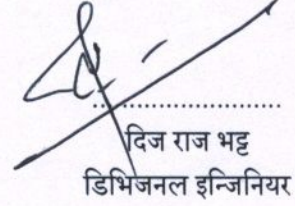 दिज राज भट्ट
डिभिजनल इन्जिनियर